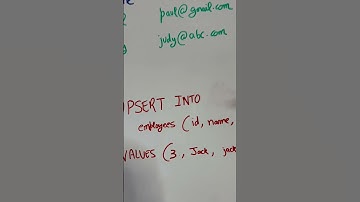 paul@gmail.com
judy@abc.com
UPSERT INTO
employees (id, name,
VALUES (3, Jack, jack